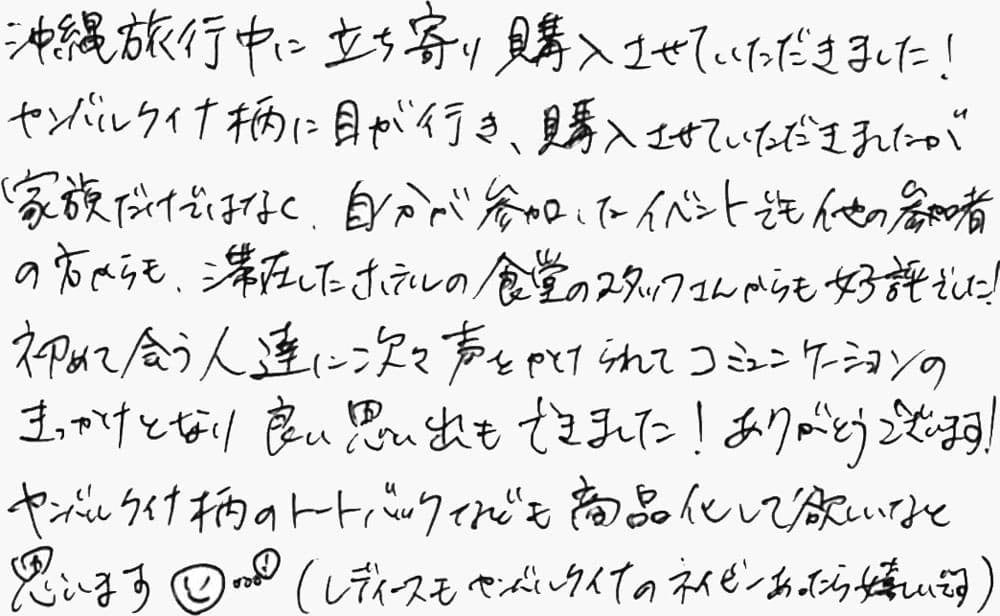 沖縄旅行中に立ち寄り購入させていただきました！
ヤンバルクイナ柄に目が行き、購入させていただきましたが
家族だけではなく、自分が参加したイベントでも他の参加者
の方からも、滞在したホテルの食堂のスタッフさんからも好評でした！
初めて会う人達に次々声をかけられてコミュニケーションの
きっかけとなり良い思い出もできました！ありがとうございます！
ヤンバルクイナ柄のトートバックなども商品化して欲しいなと
思います（レディースもヤンバルクイナのネイビーあったら嬉しいです）